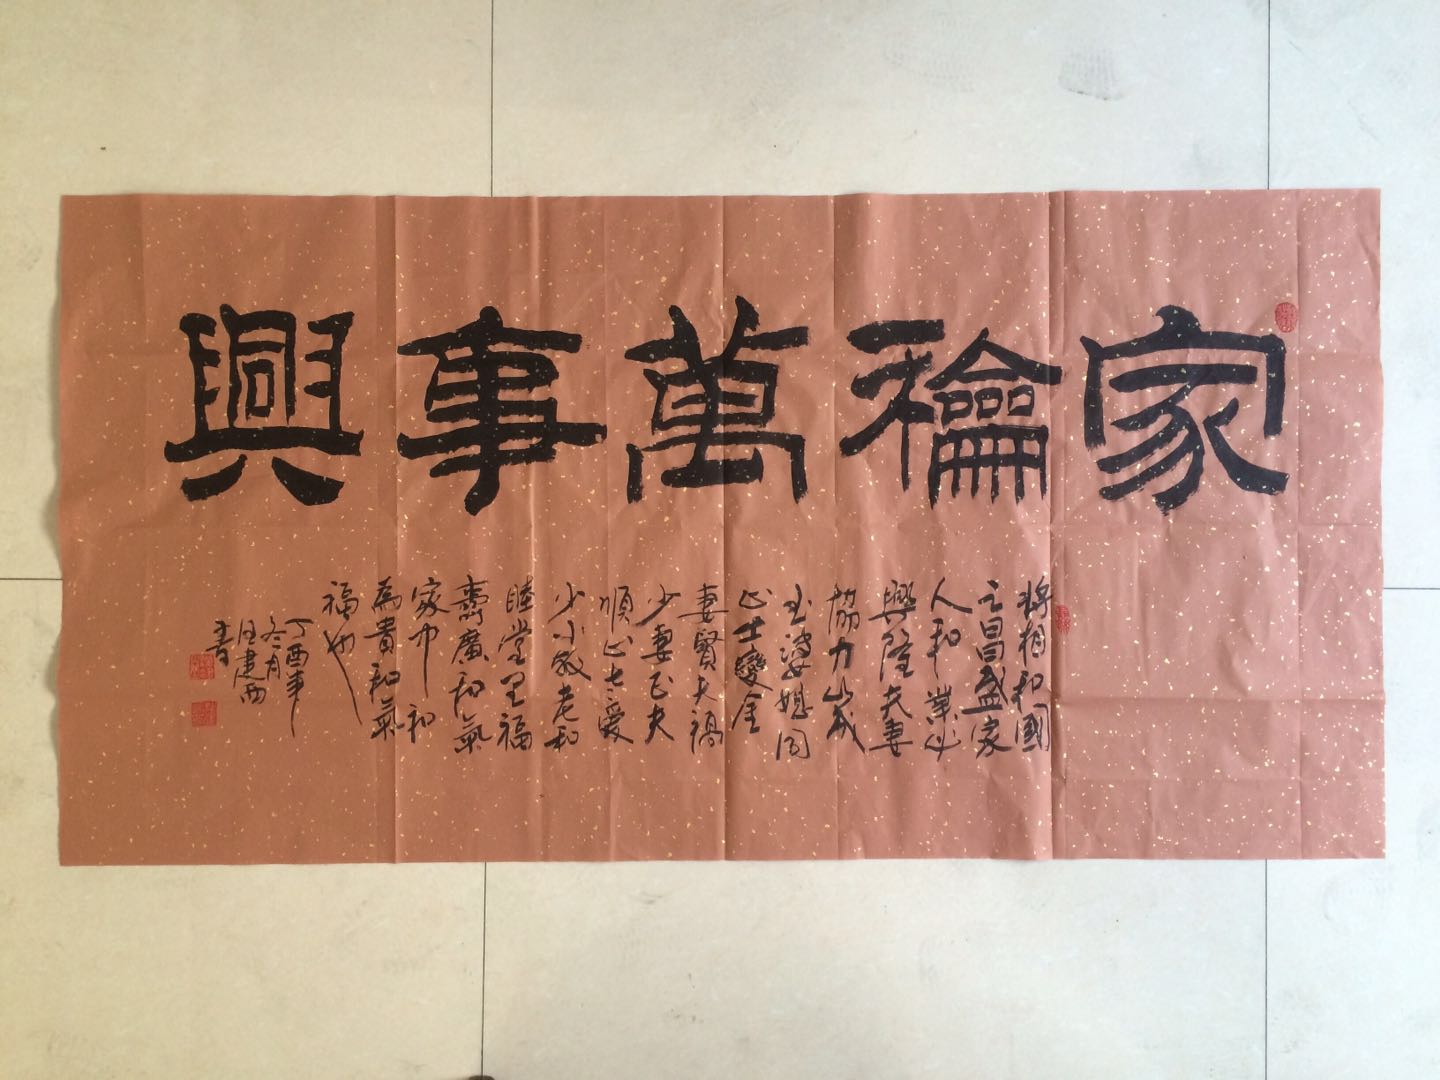 家龢萬事興
將相和國
之昌盛家
人和業必
興隆夫妻
協力山成
玉婆媳同
心土變金
妻賢夫禍
少妻正夫
順心老愛
少小敬老和
睦堂里福
壽廣和氣
家中和
為貴和氣
福也
丁酉年
冬月
建西
書